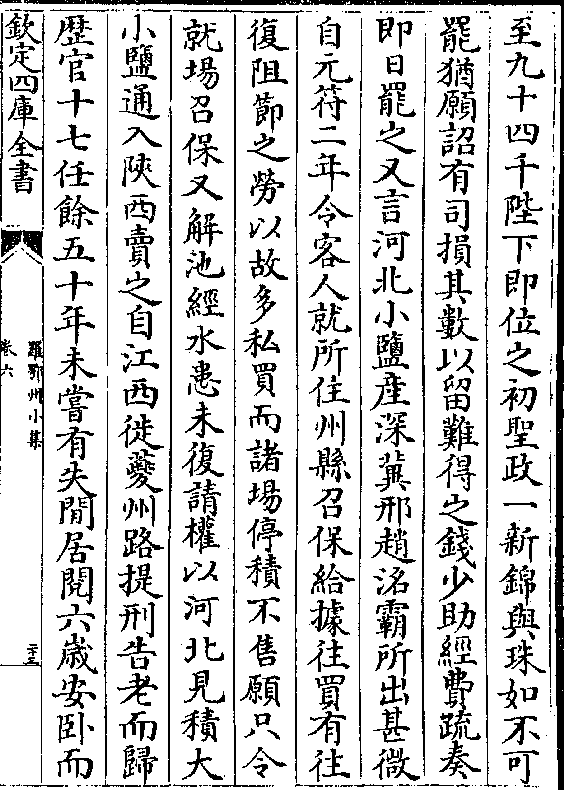 至九十四千陛下即位之初聖政一新錦與珠如不可
罷猶願詔有司損其數以留難得之錢少助經費疏奏
即日罷之又言河北小鹽産深冀邢趙洺霸所出甚微
自元符二年令客人就所住州縣召保給據往買有往
復阻節之勞以故多私買而諸場停積不售願只令
就場召保又解池經水患未復請權以河北見積大
小鹽通入陜西賣之自江西徙夔州路提刑告老而歸
歴官十七任餘五十年未嘗有失閒居閱六歲安卧而
欽定四庫全書
羅鄂州小集
卷六
二十三